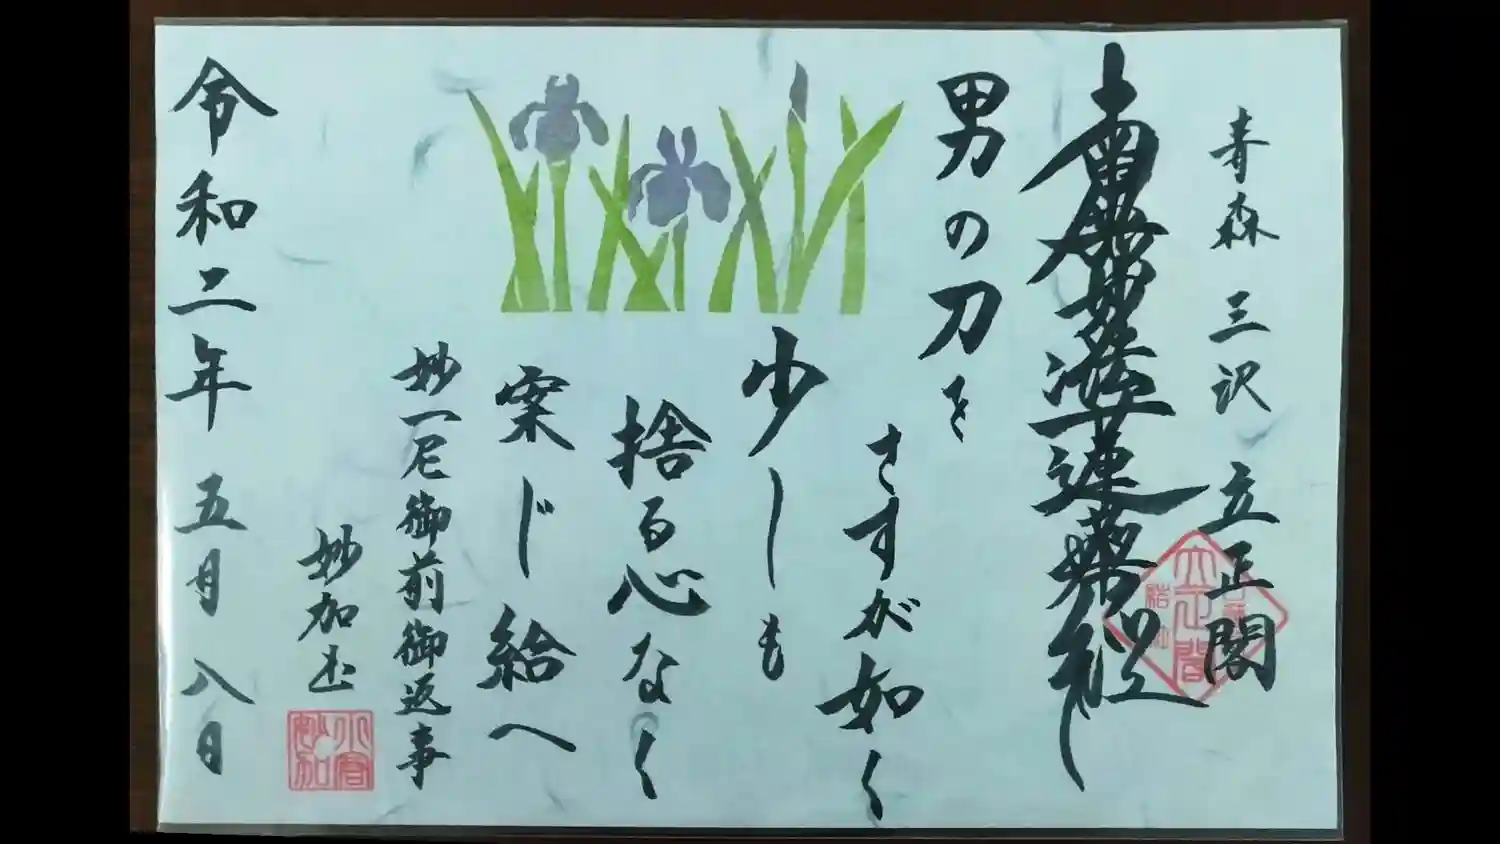 青森 三沢 立正閣
南無妙法蓮華経
男の刀を
さすが如く
少しも
捨る心なく
案じ給へ
妙一尼御前御返事
妙加
令和二年 五月 八日